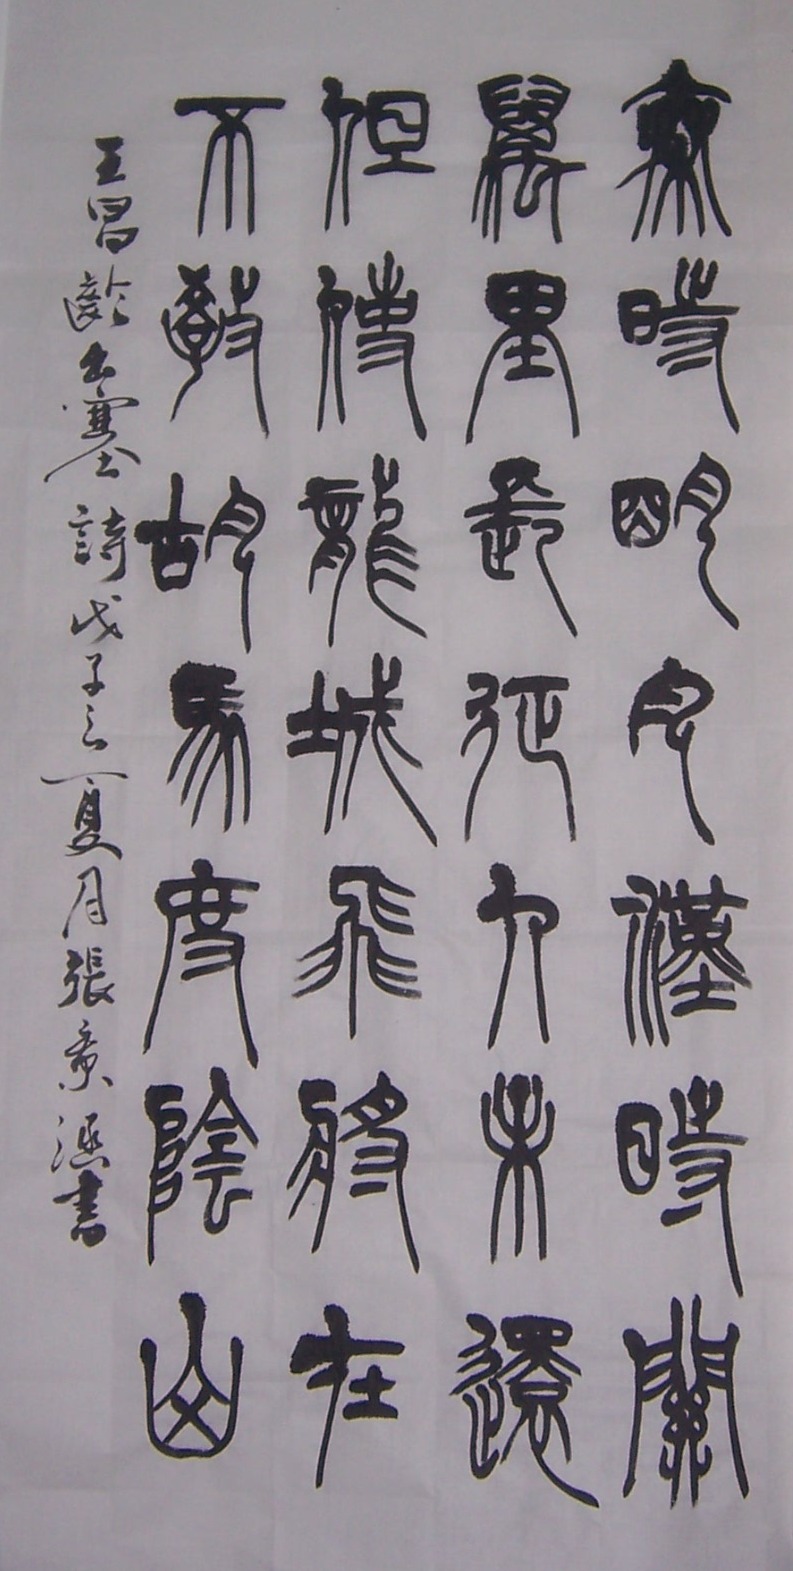 秦時明月漢時關
萬里長征人未還
但使龍城飛將在
不教胡馬度陰山
王昌齡出塞詩戊子之夏月張景書